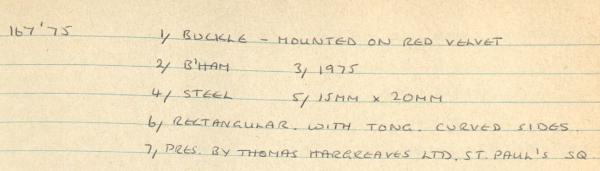 167'75 1/ BUCKLE - MOUNTED ON RED VELVET
2/ B'HAM 3/ 1975
4/ STEEL 5/ 15MM x 20MM
6/ RECTANGULAR. WITH TONG. CURVED SIDES.
7/ PRES. BY THOMAS HARGREAVES LTD, ST. PAUL'S SQ